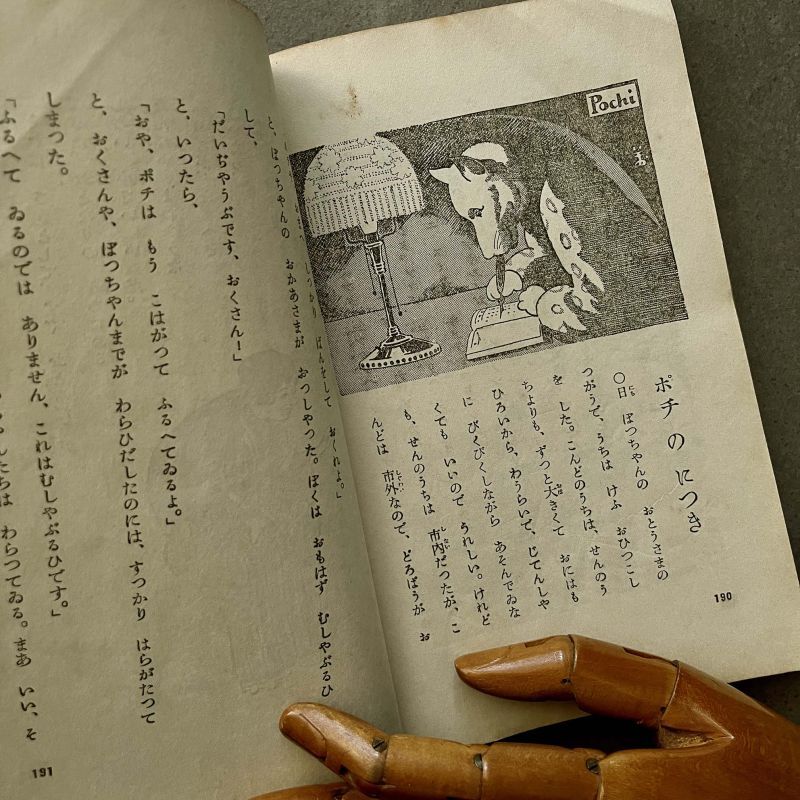 Pochi
ポチ の につき
〇日 ぼつちやんの おとうさまの
つがうで、うちは けふ おひつこし
を した。こんどのうちは、せんのう
ちよりも、ずつと大きくて おにはも
ひろいから、わうらいで、じてんしや
に びくびくしながら あそんでゐな
くても いいので うれしい。けれど
も、せんのうちは 市内だつたが、こ
んどは 市外なので、どろばうが お
190
しつかり ばんをして おくれよ。」
と、ぼつちやんの おかあさまが おつしやつた。ぼくは おもはず むしやぶるひ
して、
「だいぢやうぶです、おくさん！」
と、いつたら、
「おや、ポチは もう こはがつて ふるへてゐるよ。」
と、おくさんや、ぼつちやんまでが わらひだしたのには、すつかり はらがたつて
しまつた。
「ふるへて ゐるのでは ありません、これはむしやぶるひです。」
わらつてゐる。まあ いい、そ
191